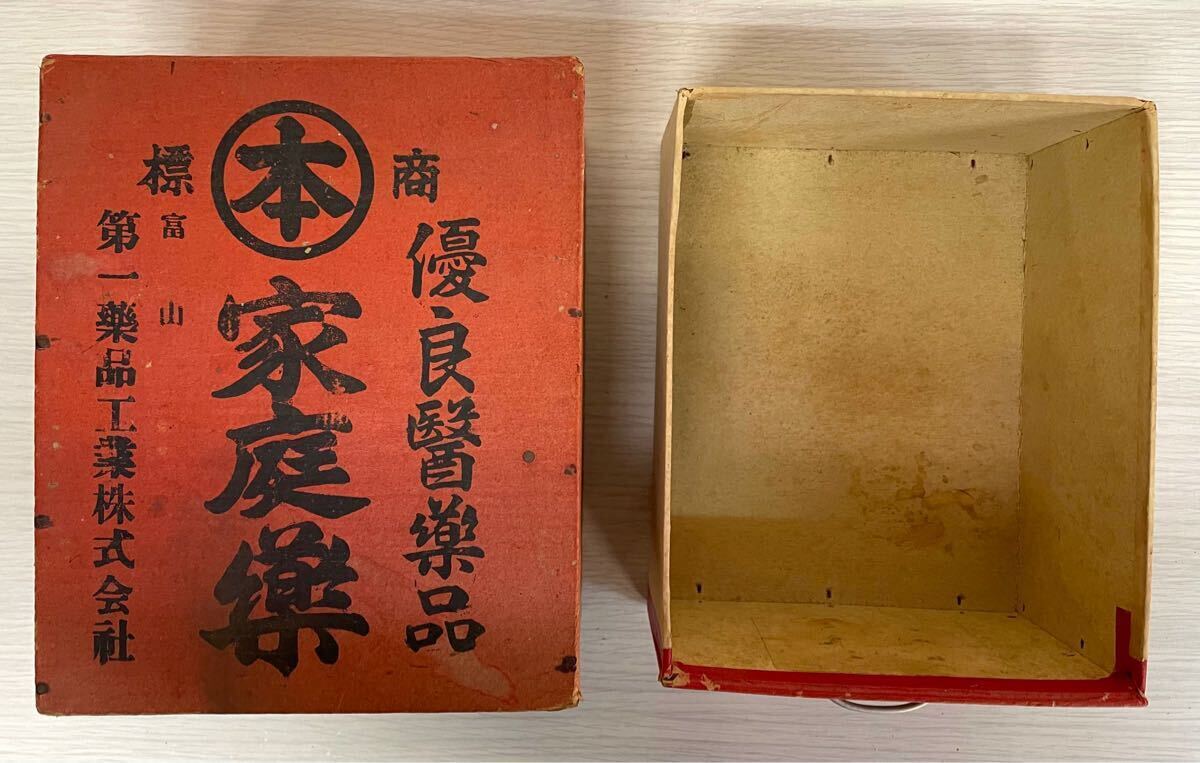 商標
本
優良醫藥品
家庭藥
富山
第一薬品工業株式会社